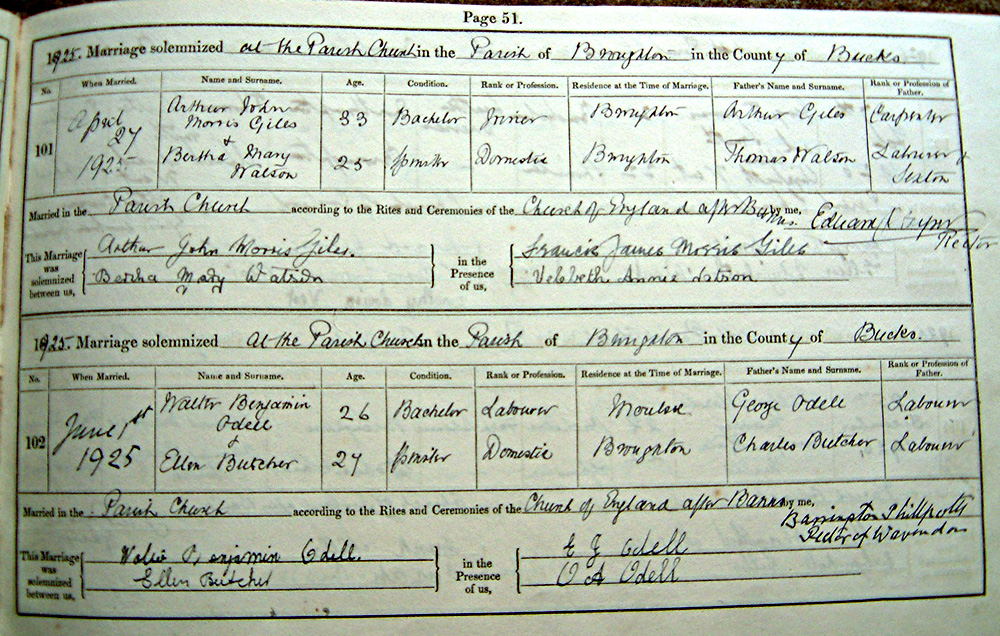 Page 51.
1925. Marriage solemnized at the Parish Church in the Parish of Broughton in the County of Bucks.
No. When Married. Name and Surname. Age. Condition. Rank or Profession. Residence at the Time of Marriage. Father's Name and Surname. Rank or Profession of Father.
101 April 27 1925 Arthur John Morris Giles 33 Bachelor Joiner Broughton Arthur Giles Carpenter
& Bertha Mary Watson 25 Spinster Domestic Broughton Thomas Watson Labourer & Sexton
Married in the Parish Church according to the Rites and Ceremonies of the Church of England after Banns by me, Edward Rector
This Marriage was solemnized between us, Arthur John Morris Giles. in the Presence of us, Francis James Morris Giles
Bertha Mary Watson Annie Watson
1925. Marriage solemnized At the Parish Church in the Parish of Broughton in the County of Bucks.
No. When Married. Name and Surname. Age. Condition. Rank or Profession. Residence at the Time of Marriage. Father's Name and Surname. Rank or Profession of Father.
102 June 1st 1925 Walter Benjamin Odell 26 Bachelor Labourer Moulsoe George Odell Labourer
& Ellen Butcher 27 Spinster Domestic Broughton Charles Butcher Labourer
Married in the Parish Church according to the Rites and Ceremonies of the Church of England after Banns by me, Barrington Phillpotts Rector of Wavendon
This Marriage was solemnized between us, Walter Benjamin Odell. in the Presence of us, E J Odell
Ellen Butcher O A Odell